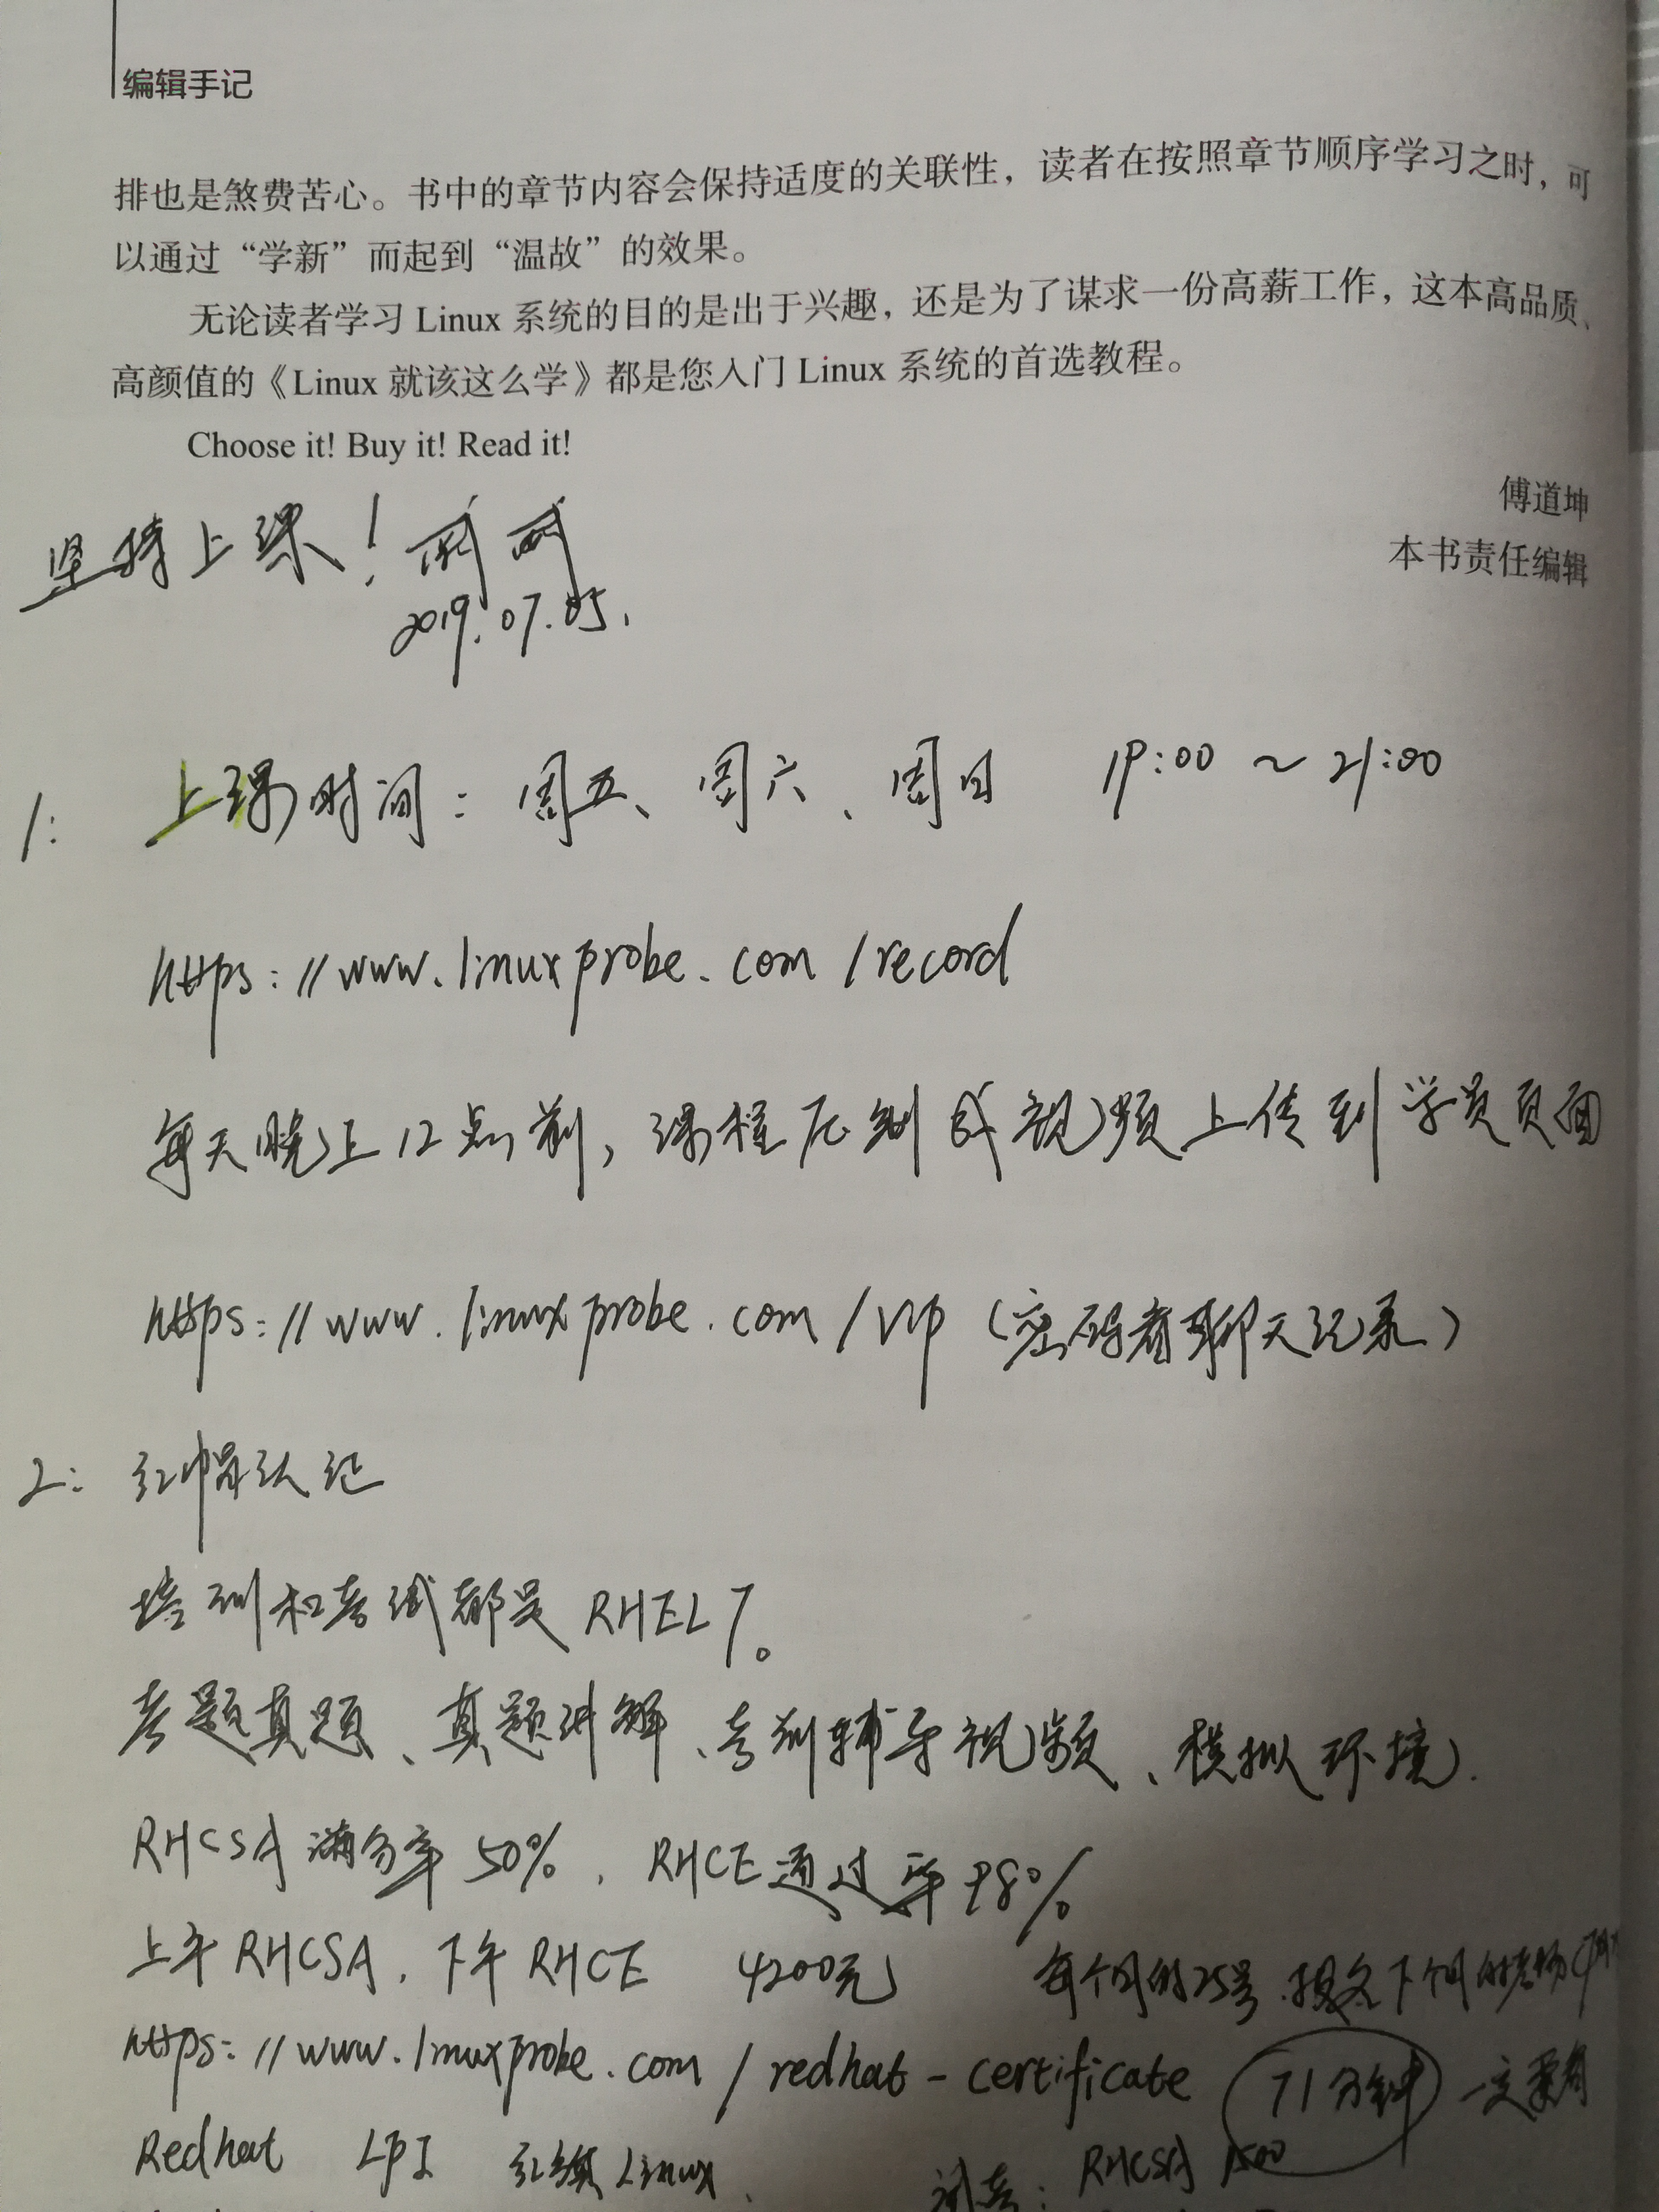 编辑手记
排也是煞费苦心。书中的章节内容会保持适度的关联性，读者在按照章节顺序学习之时，可
以通过“学新”而起到“温故”的效果。
无论读者学习 Linux 系统的目的是出于兴趣，还是为了谋求一份高薪工作，这本高品质、
高颜值的《Linux 就该这么学》都是您入门 Linux 系统的首选教程。
Choose it! Buy it! Read it!
傅道坤
本书责任编辑
坚持上课！
2019.07.05.
1: 上课时间：周五、周六、周日 19:00 ~ 21:00
https://www.linuxprobe.com/record
每天晚上12点前，课程压制成视频上传到学员页面
https://www.linuxprobe.com/vip（密码看聊天记录）
2: 红帽认证
培训和考试都是 RHEL7。
考题真题、真题讲解、考前辅导视频、模拟环境.
RHCSA 满分率 50%，RHCE 通过率 98%
上午 RHCSA，下午 RHCE 4200元 每个月的25号 报名下个月的考场
https://www.linuxprobe.com/redhat-certificate 71分钟 一定要看
Redhat LPI 红旗Linux
试卷: RHCSA 1500